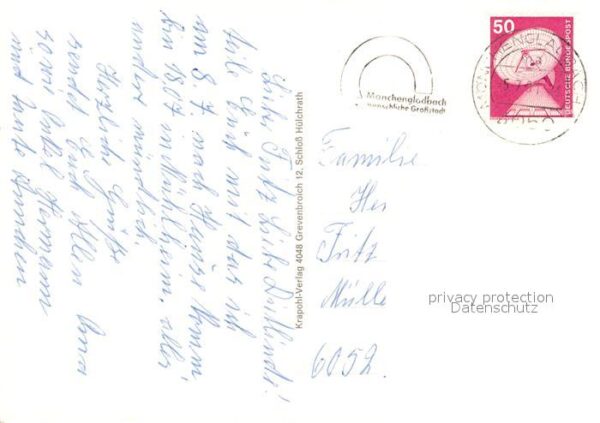 Liebe Fritz Liebe
teile Euch mit das ich
am 8. 7. nach Hause komm,
an 1807 Mühlheim, alles
andere mündlich,
Herzliche Grüße
sendet Euch Allen Oma
Hermann
und
Krapohl-Verlag 4048 Grevenbroich 12, Schloß Hülchrath
Mönchengladbach
menschliche Großstadt
50
DEUTSCHE BUNDESPOST
MÖNCHENGLADBACH
4050
Familie
Fritz
Mülle
6052
privacy protection
Datenschutz